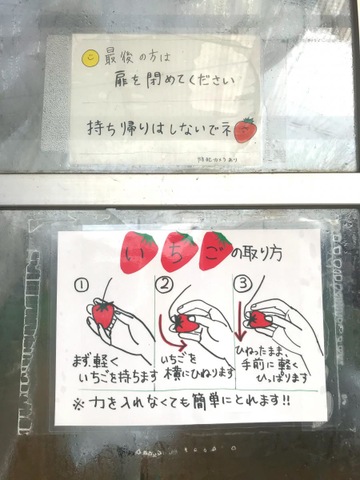 最後の方は
扉を閉めてください
持ち帰りはしないでネ
防犯カメラあり
いちごの取り方
①
まず、軽く
いちごを持ちます
②
いちごを
横にひねります
③
ひねったまま、
手前に軽く
ひっぱります
※力を入れなくても簡単にとれます!!